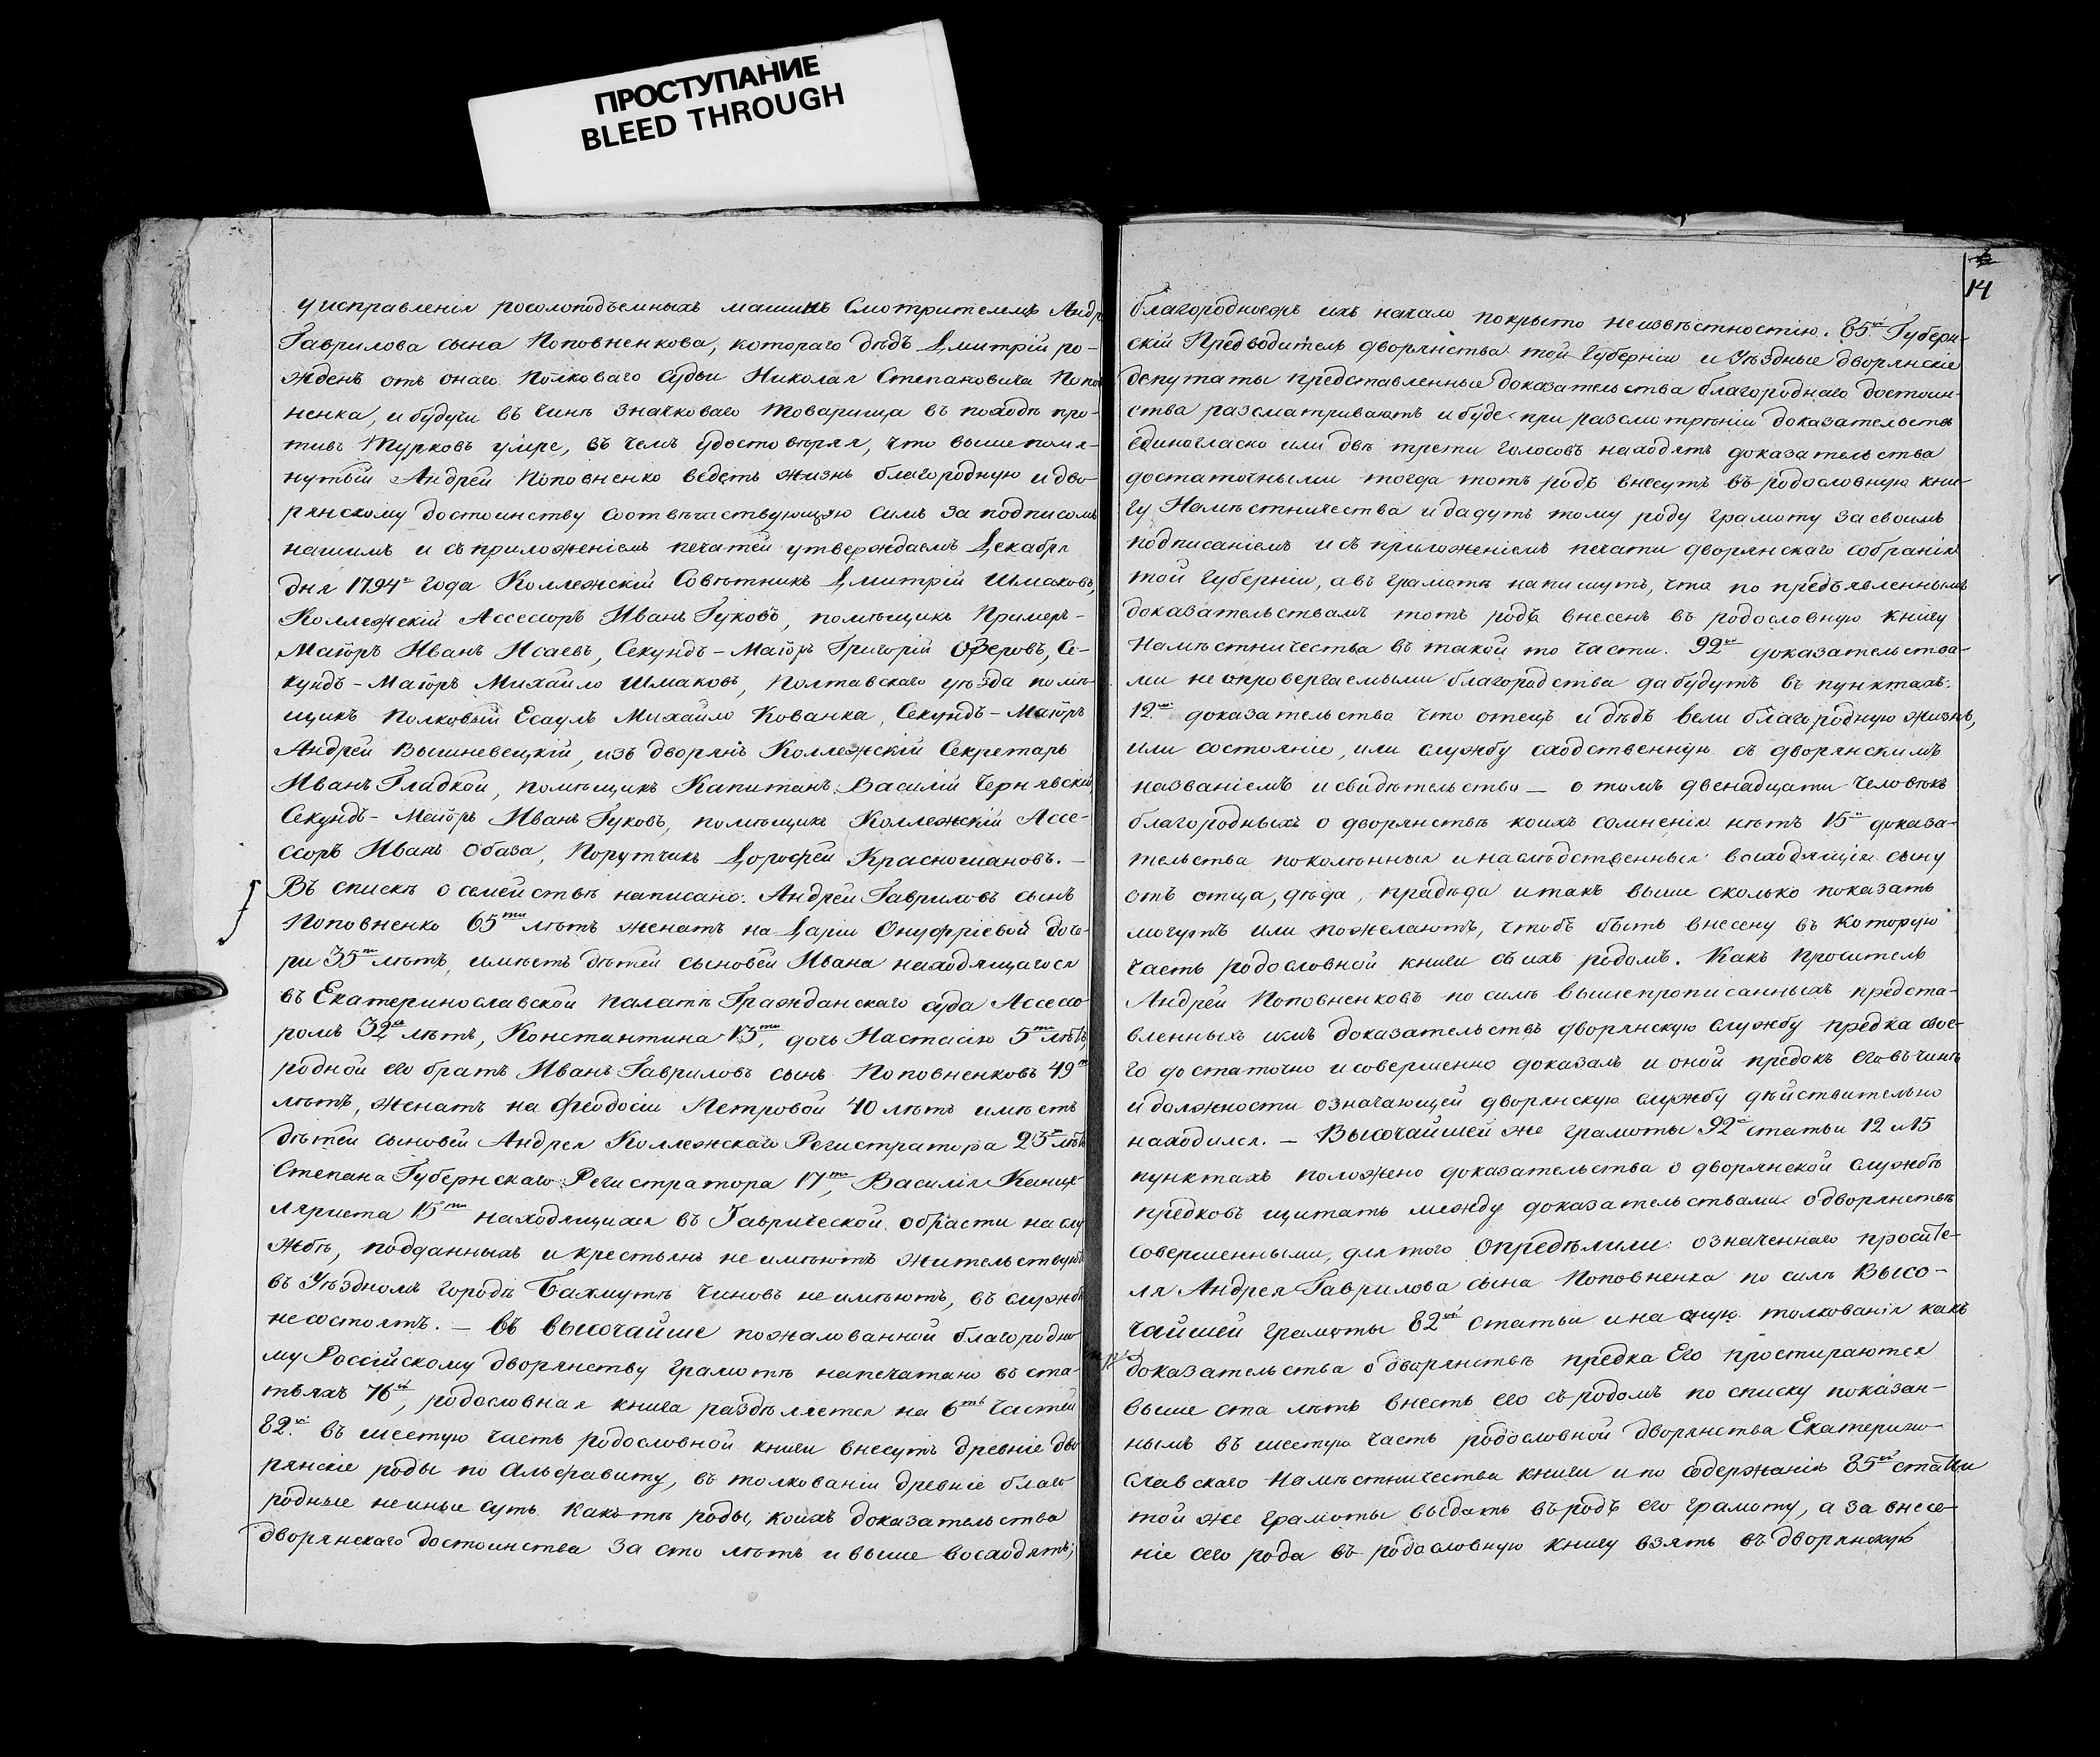 ПРОСТУПАНИЕ
BLEED THROUGH
у исправленія росолоподъемныхъ машинъ Смотрителемъ Андр
Гаврилова сына Поповненкова, котораго дѣдъ Дмитрій ро-
жденъ отъ онаго Полковаго судьи Николая Степановича Попов
ненка, и будучи въ чинѣ значковаго товарища въ походѣ про-
тивъ Турковъ умре, въ чемъ удостовѣряя, что вышепомя-
нутый Андрей Поповненко ведетъ жизнь благородную и дво-
рянскому достоинству соотвѣтствующую симъ за подписомъ
нашимъ и съ приложеніемъ печатей утверждаемъ Декабря
дня 1794го года Коллежскій Совѣтникъ Дмитрій Шмаковъ,
Коллежскій Ассессоръ Иванъ Гуковъ, помѣщикъ Примеръ-
Маіоръ Иванъ Исаевъ, Секундъ-Маіоръ Григорій Озеровъ, Се-
кундъ-Маіоръ Михайло Шмаковъ, Полтавскаго уѣзда помѣ-
щикъ Полковый Есаулъ Михайло Кованка, Секундъ-Маіоръ
Андрей Вышневецкій, изъ дворянъ Коллежскій Секретарь
Иванъ Гладкой, помѣщикъ Капитанъ Василій Чернявскій
Секундъ-Маіоръ Иванъ Гуковъ, помѣщикъ Коллежскій Ассе-
ссоръ Иванъ Обаза, Порутчикъ Дорофей Красношановъ. —
Въ спискѣ о семействѣ написано: Андрей Гавриловъ сынъ
Поповненко 65ти лѣтъ женатъ на Даріи Онуфріевой доче-
ри 35ти лѣтъ, имѣетъ дѣтей сыновей Ивана находящагося
въ Екатеринославской Палатѣ Гражданскаго суда Ассессо-
ромъ 32хъ лѣтъ, Константина 13ти, дочь Настасію 5ти лѣтъ,
родной его братъ Иванъ Гавриловъ сынъ Поповненковъ 49ти
лѣтъ, женатъ на Феодосіи Петровой 40 лѣтъ имѣетъ
дѣтей сыновей Андрея Коллежскаго Регистратора 23хъ лѣтъ
Степана Губернскаго Регистратора 17ти, Василія Канце
ляриста 15ти находящихся въ Таврической области на слу
жбѣ, подданныхъ и крестьянъ не имѣютъ жительствуютъ
въ Уѣздномъ городѣ Бахмутѣ чиновъ не имѣютъ, въ службѣ
не состоятъ. — Въ высочайше пожалованной благородно
му Россійскому дворянству грамотѣ напечатано въ ста-
тьяхъ 76й, родословная книга раздѣляется на 6ть частей
82й въ шестую часть родословной книги внесутъ древніе дво
рянскіе роды по Альфавиту, въ толкованіи древніе благо
родные не иные суть какъ тѣ роды, коихъ доказательства
дворянскаго достоинства за сто лѣтъ и выше восходятъ;
14
благородноежъ ихъ начало покрыто неизвѣстностію. 85й Губерн-
скій Предводитель дворянства той Губерніи и Уѣздные дворянскіе
депутаты представленные доказательства благороднаго достоин-
ства разсматриваютъ и буде при разсмотрѣніи доказательствъ
единогласно или двѣ трети голосовъ находятъ доказательства
достаточными тогда тотъ родъ внесутъ въ родословную кни-
гу Намѣстничества и дадутъ тому роду грамоту за своимъ
подписаніемъ и съ приложеніемъ печати дворянскаго собранія
той Губерніи, а въ грамотѣ напишутъ, что по предъявленнымъ
доказательствамъ тотъ родъ внесенъ въ родословную книгу
Намѣстничества въ такой то части. 92й доказательства-
ми неопровергаемыми благородства да будутъ въ пунктахъ:
12й доказательство что отецъ и дѣдъ вели благородную жизнь,
или состояніе, или службу сходственную съ дворянскимъ
названіемъ и свидѣтельство — о томъ двенадцати человѣкъ
благородныхъ о дворянствѣ коихъ сомненія нѣтъ 15й доказа-
тельства поколѣнныя и наслѣдственныя восходящія сыну
отъ отца, дѣда, прадѣда и такъ выше сколько показать
могутъ или пожелаютъ, чтобъ быть внесену въ которую
часть родословной книги съ ихъ родомъ. Какъ проситель
Андрей Поповненковъ по силѣ вышепрописанныхъ предста-
вленныхъ имъ доказательствъ дворянскую службу предка свое-
го достаточно и совершенно доказалъ и оной предокъ его въ чинѣ
и должности означающей дворянскую службу дѣйствительно
находился. — Высочайшей же грамоты 92й статьи 12 и 15
пунктахъ положено доказательства о дворянской службѣ
предковъ щитать между доказательствами о дворянствѣ
совершенными, для того Опредѣлили: означеннаго просите-
ля Андрея Гаврилова сына Поповненка по силѣ Высо-
чайшей грамоты 82й статьи и на оную толкованія какъ
доказательства о дворянствѣ предка Его простираются
выше ста лѣтъ внесть его съ родомъ по списку показан-
нымъ въ шестую часть родословной дворянства Екатерино-
славскаго Намѣстничества книги и по содержанію 85й статьи
той же грамоты выдать въ родъ его грамоту, а за внесе-
ніе сего рода въ родословную книгу взять въ дворянскую